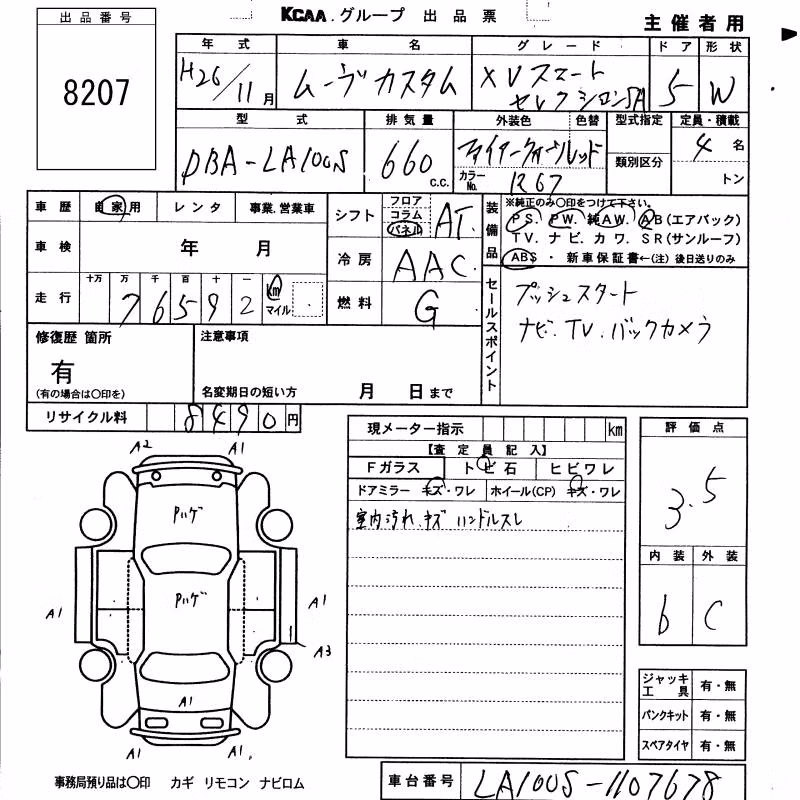 出品番号
8207
KCAA.グループ 出品票
主催者用
年式 車名 グレード ドア 形状
H26/11月 ムーヴカスタム XVスマート セレクションSA 5 W
型式 排気量 外装色 色替 型式指定 定員・積載
DBA-LA100S 660 c.c. ファイアークォーツレッド 類別区分 4名
カラーNo. R67 トン
車歴 自家用 レンタ 事業.営業車
シフト フロア コラム パネル AT
装備品 ※純正のみ〇印をつけて下さい。
PS. PW. 純AW. AB(エアバック)
TV. ナビ. カワ. SR(サンルーフ)
ABS・新車保証書←(注) 後日送りのみ
車検 年 月
冷房 AAC
走行 十万 万 千 百 十 一
76592 km マイル
燃料 G
セールスポイント
プッシュスタート
ナビ.TV.バックカメラ
修復歴 箇所
有
(有の場合は〇印を)
注意事項
名変期日の短い方 月 日まで
リサイクル料 8490円
現メーター指示 km
【査定員記入】
Fガラス トビ石 ヒビワレ
ドアミラー キズ・ワレ ホイール(CP) キズ・ワレ
室内汚れ.キズ ハンドルスレ
評価点
3.5
内装 外装
b C
A2 A1
Pハゲ
Pハゲ
A1 A1
A3
A1
A1 A1.
ジャッキ工具 有・無
パンクキット 有・無
スペアタイヤ 有・無
事務局預り品は〇印 カギ リモコン ナビロム
車台番号 LA100S-1107678